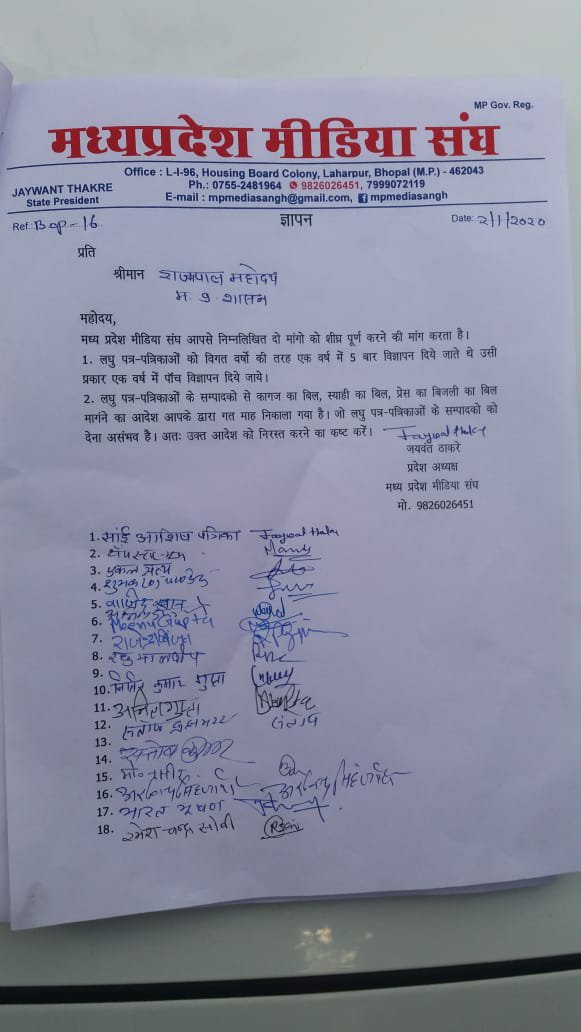 MP Gov. Reg.
मध्यप्रदेश मीडिया संघ
JAYWANT THAKRE
State President
Office : L-I-96, Housing Board Colony, Laharpur, Bhopal (M.P.) - 462043
Ph.: 0755-2481964 9826026451, 7999072119
E-mail : mpmediasangh@gmail.com, mpmediasangh
Ref. Bop-16.
ज्ञापन
Date: 2/1/2020
प्रति
श्रीमान राज्यपाल महोदय
म. प्र. शासन
महोदय,
मध्य प्रदेश मीडिया संघ आपसे निम्नलिखित दो मांगो को शीघ्र पूर्ण करने की मांग करता है।
1. लघु पत्र-पत्रिकाओं को विगत वर्षो की तरह एक वर्ष में 5 बार विज्ञापन दिये जाते थे उसी
प्रकार एक वर्ष में पॉच विज्ञापन दिये जाये।
2. लघु पत्र-पत्रिकाओं के सम्पादको से कागज का बिल, स्याही का बिल, प्रेस का बिजली का बिल
मागंने का आदेश आपके द्वारा गत माह निकाला गया है। जो लघु पत्र-पत्रिकाओं के सम्पादको को
देना असंभव है। अतः उक्त आदेश को निरस्त करने का कष्ट करें।
जयवंत ठाकरे
प्रदेश अध्यक्ष
मध्य प्रदेश मीडिया संघ
मो. 9826026451
1. सांई आशिष पत्रिका
2.
3.
4.
5.
6. Meenu Gupta
7.
8.
9.
10. कुमार गुप्ता
11. अनिल गुप्ता
12.
13.
14.
15.
16.
17. भारत भूषण
18. रमेश चन्द्र सोनी